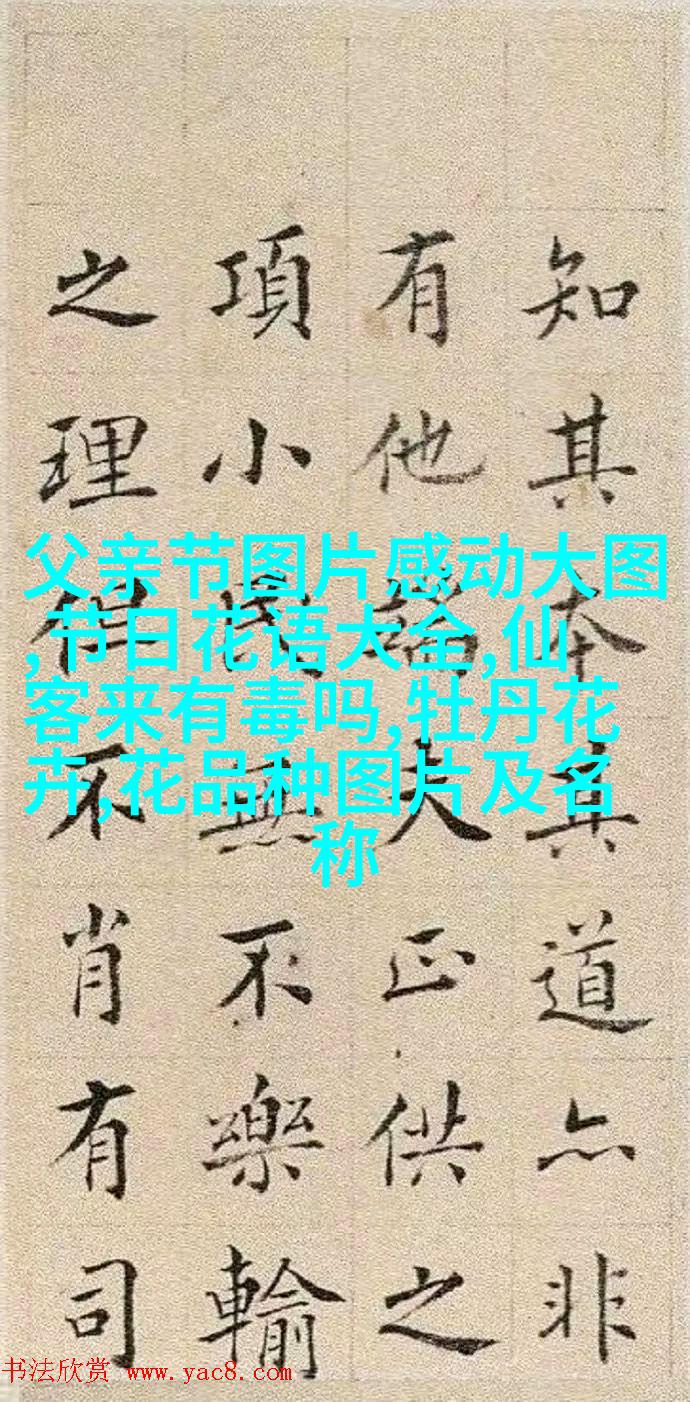 知其本其道亦非
有他端夫正供之
項小民無不樂輸
之理但不肖有司
父亲节图片感动大图
,节日花语大全,仙
客来有毒吗,牡丹花
卉,花品种图片及名
称
书法欣赏 www.yac8.com